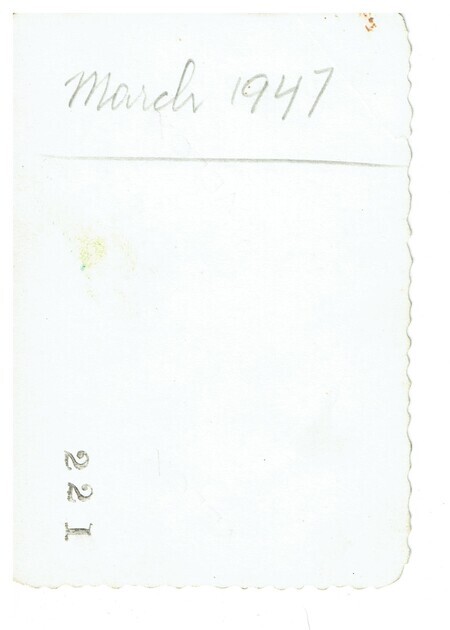 March 1947
221